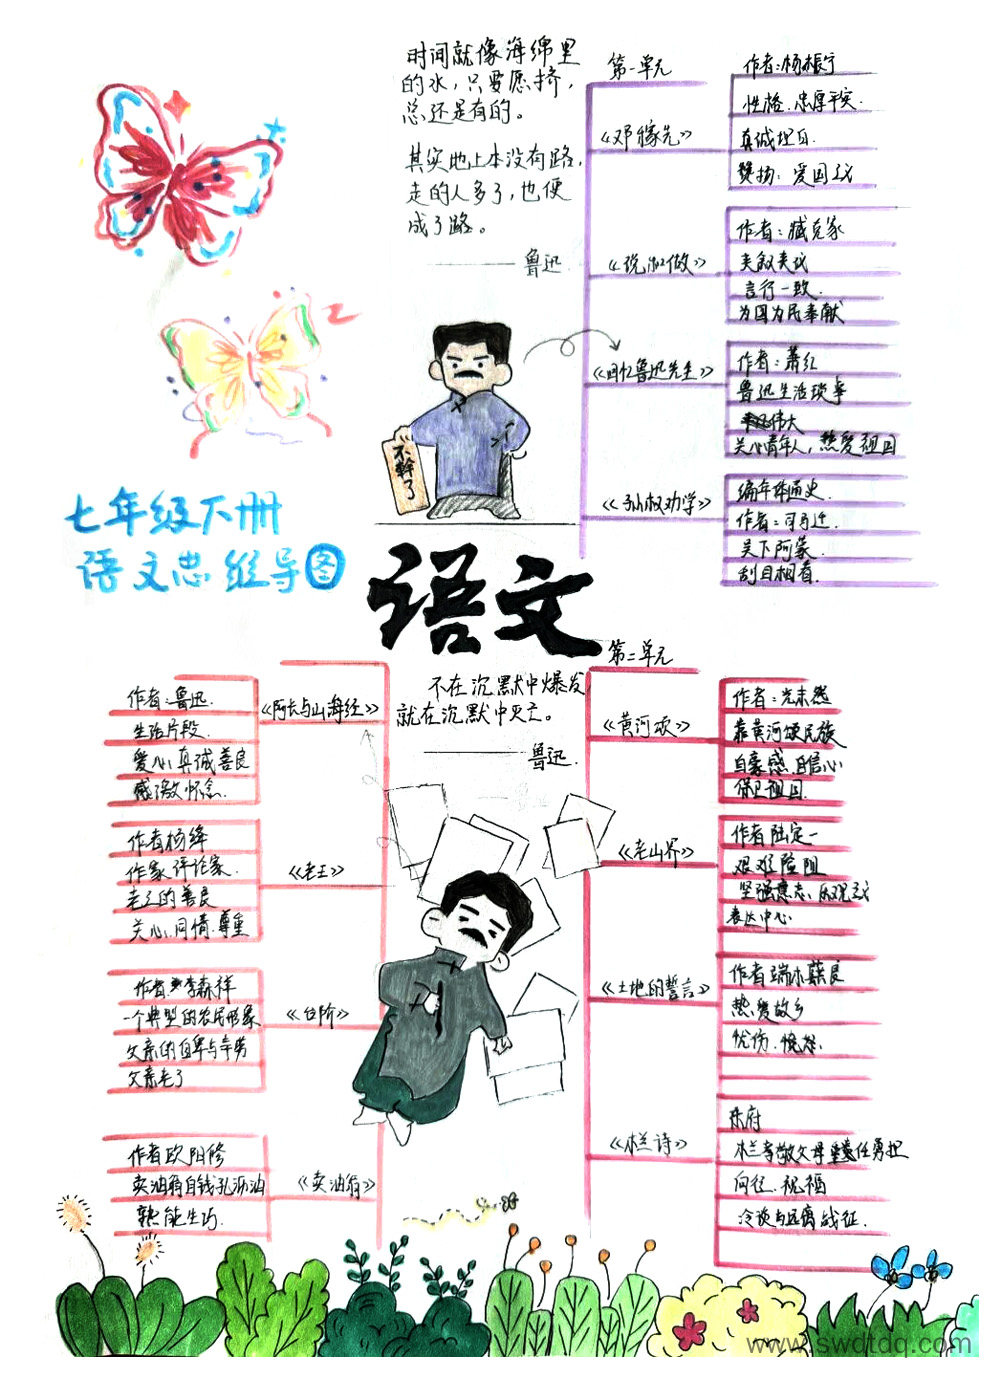 时间就像海绵里
的水，只要愿挤，
总还是有的。
其实地上本没有路，
走的人多了，也便
成了路。
——鲁迅
不幹了
七年级下册
语文思维导图
语文
第一单元
《邓稼先》
作者：杨振宁
性格：忠厚平实
真诚坦白
赞扬：爱国主义
《说和做》
作者：臧克家
夹叙夹议
言行一致
为国为民奉献
《回忆鲁迅先生》
作者：萧红
鲁迅生活琐事
伟大
关心青年人，热爱祖国
《孙权劝学》
编年体通史
作者：司马迁
吴下阿蒙
刮目相看
第二单元
《黄河颂》
作者：光未然
靠黄河颂民族
自豪感.自信心
保卫祖国
《老山界》
作者陆定一
艰难险阻
坚强意志.乐观主义
表达中心
《土地的誓言》
作者端木蕻良
热爱故乡
忧伤.愤怒
《木兰诗》
乐府
木兰孝敬父母 勇担
向往.祝福
冷淡与远离战征.
不在沉默中爆发
就在沉默中灭亡。
——鲁迅
《阿长与山海经》
作者：鲁迅.
生活片段.
爱心真诚善良
感激怀念.
《老王》
作者杨绛
作家.评论家.
老王的善良
关心.同情.尊重
《台阶》
作者 李森祥
一个典型的农民形象
父亲的自卑与辛劳
父亲老了
《卖油翁》
作者欧阳修
卖油翁自钱孔沥油
熟能生巧.
www.swdtdq.com